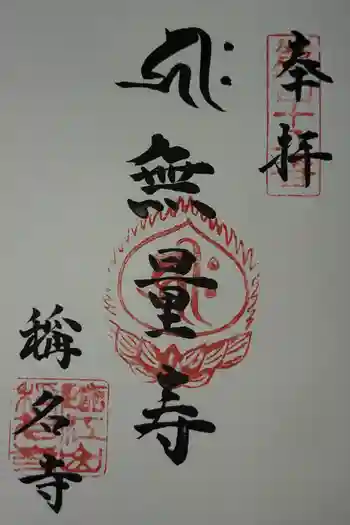 奉拝
𑖮𑖿𑖨𑖱𑖾 無量寿
称名寺